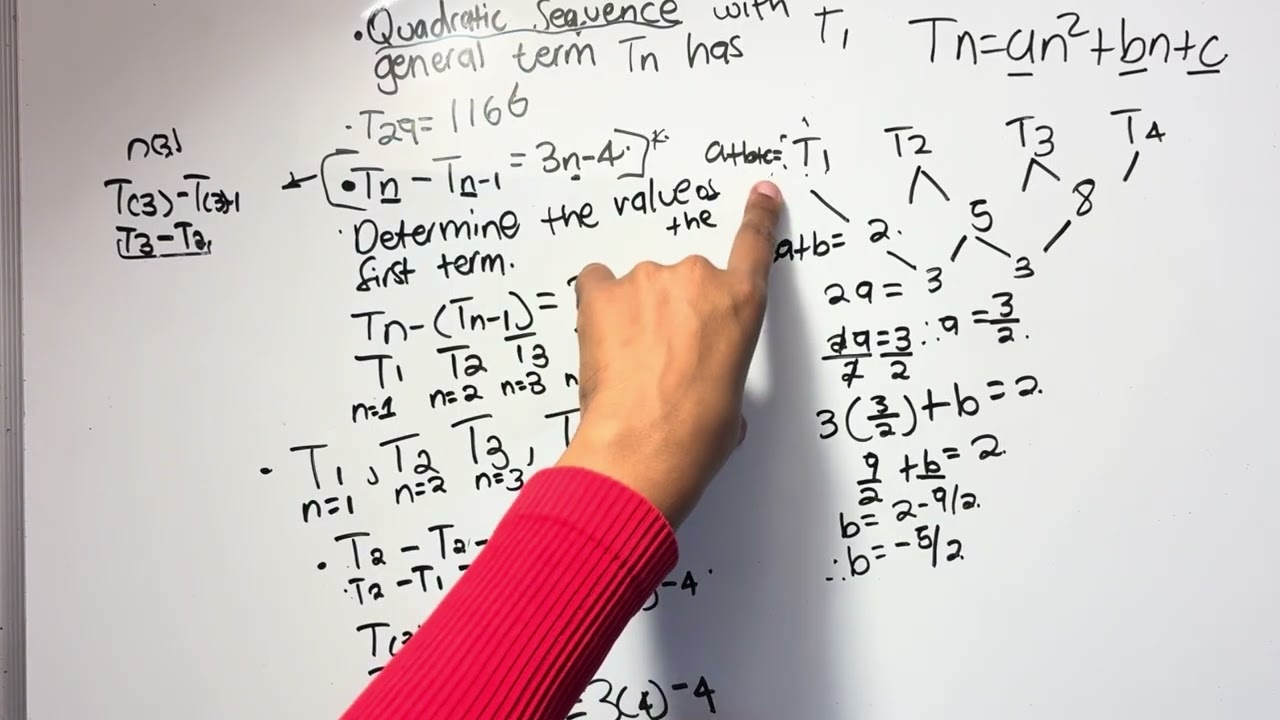 • Quadratic Sequence with
general term Tn has
T1
Tn=an²+bn+c
· T29 = 1166
• Tn - Tn-1 = 3n-4.
n(3)
T(3)-T(3)-1
T3-T2
· Determine the value of
the
first term.
Tn-(Tn-1)=
T1 T2 T3
n=1 n=2 n=3 n
• T1, T2 T3,
n=1 n=2 n=3
• T2 - T2-
T2-T1
-4
T(
=3(4)-4
a+b+c= T1 T2 T3 T4
a+b= 2. 5 8
2a= 3 3
2a/2=3/2 ∴a=3/2.
3(3/2)+b=2.
9/2 +b=2.
b=2-9/2.
∴b=-5/2